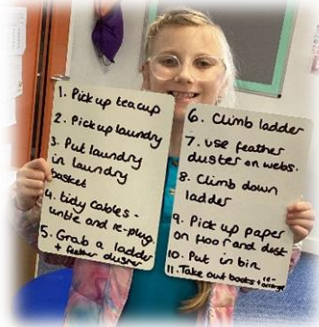 1. Pick up teacup
2. Pick up laundry
3. Put laundry
in laundry
basket
4. tidy cables -
untie and re-plug.
5. Grab a ladder
+ feather duster
6. Climb ladder
7. use feather
duster on webs.
8. Climb down
ladder
9. Pick up paper
on floor and desk
10. Put in bin
11. Take out books + re-
arrange